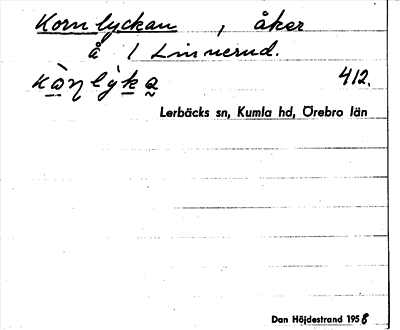 Kornlyckan, åker
å 1 Linnerud.
412.
Lerbäcks sn, Kumla hd, Örebro län
Dan Höjdestrand 1958